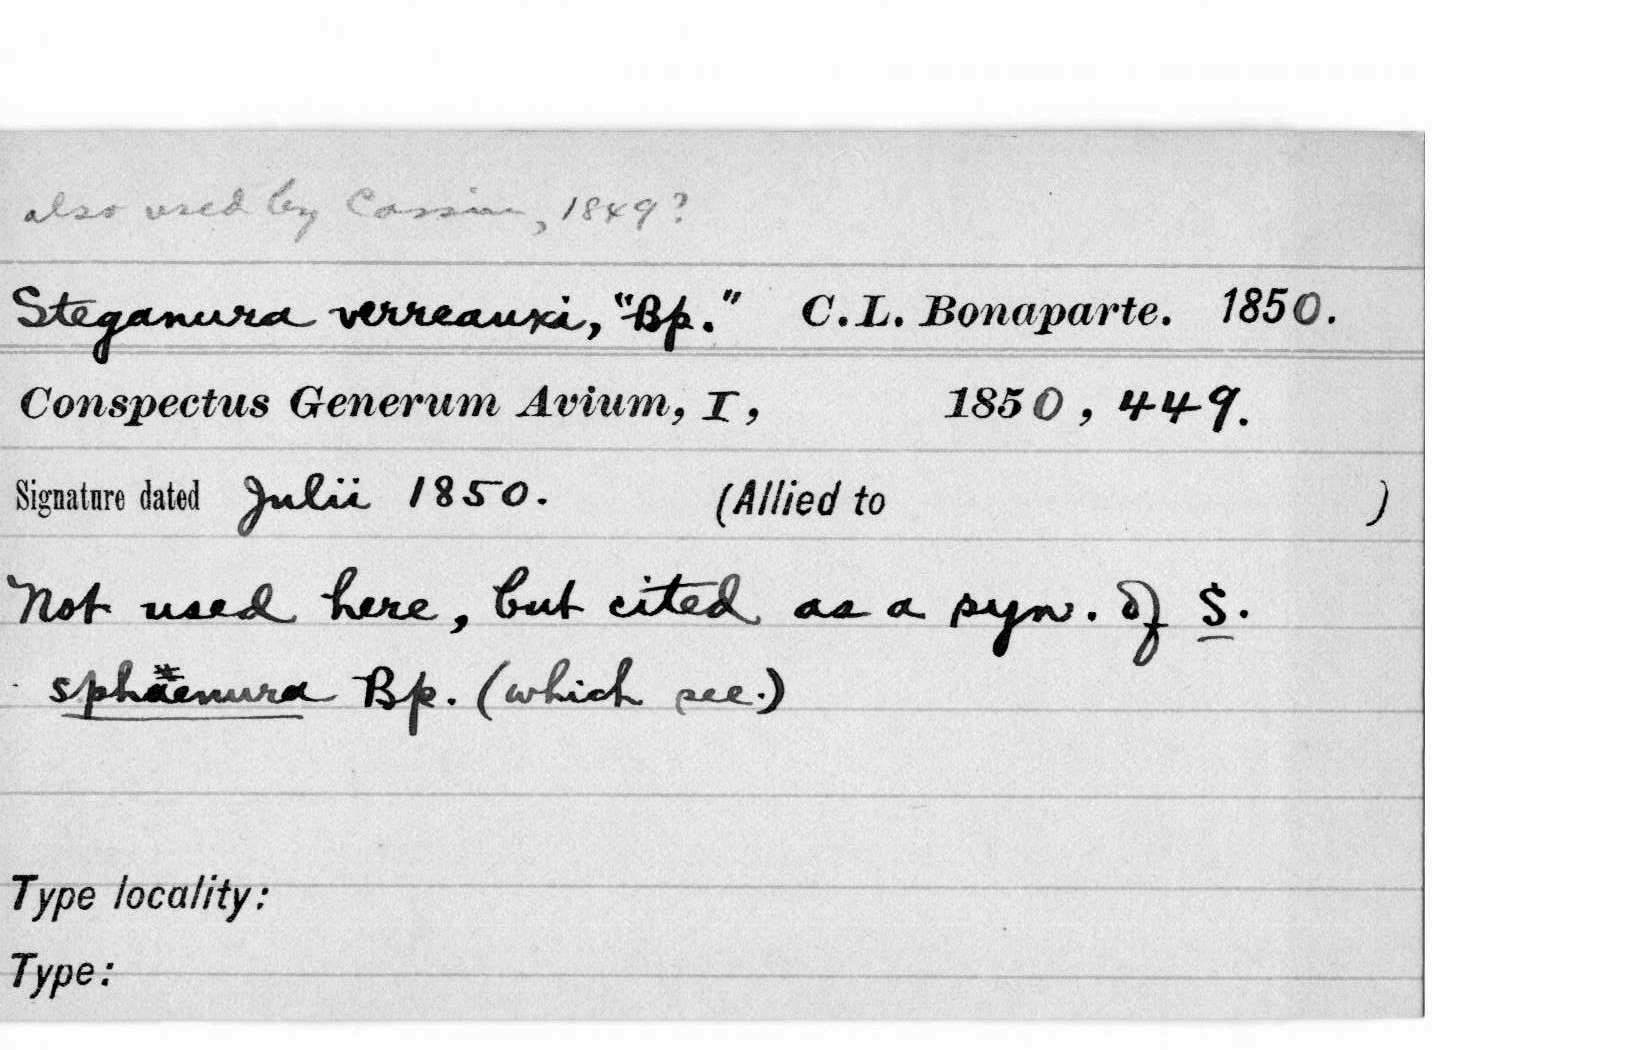 also used by Cassin, 1849?
Steganura verreauxi, "Bp." C. L. Bonaparte. 1850.
Conspectus Generum Avium, I, 1850, 449.
Signature dated Julii 1850. (Allied to )
Not used here, but cited as a syn. of S.
sphaenura Bp. (which see.)
Type locality:
Type: